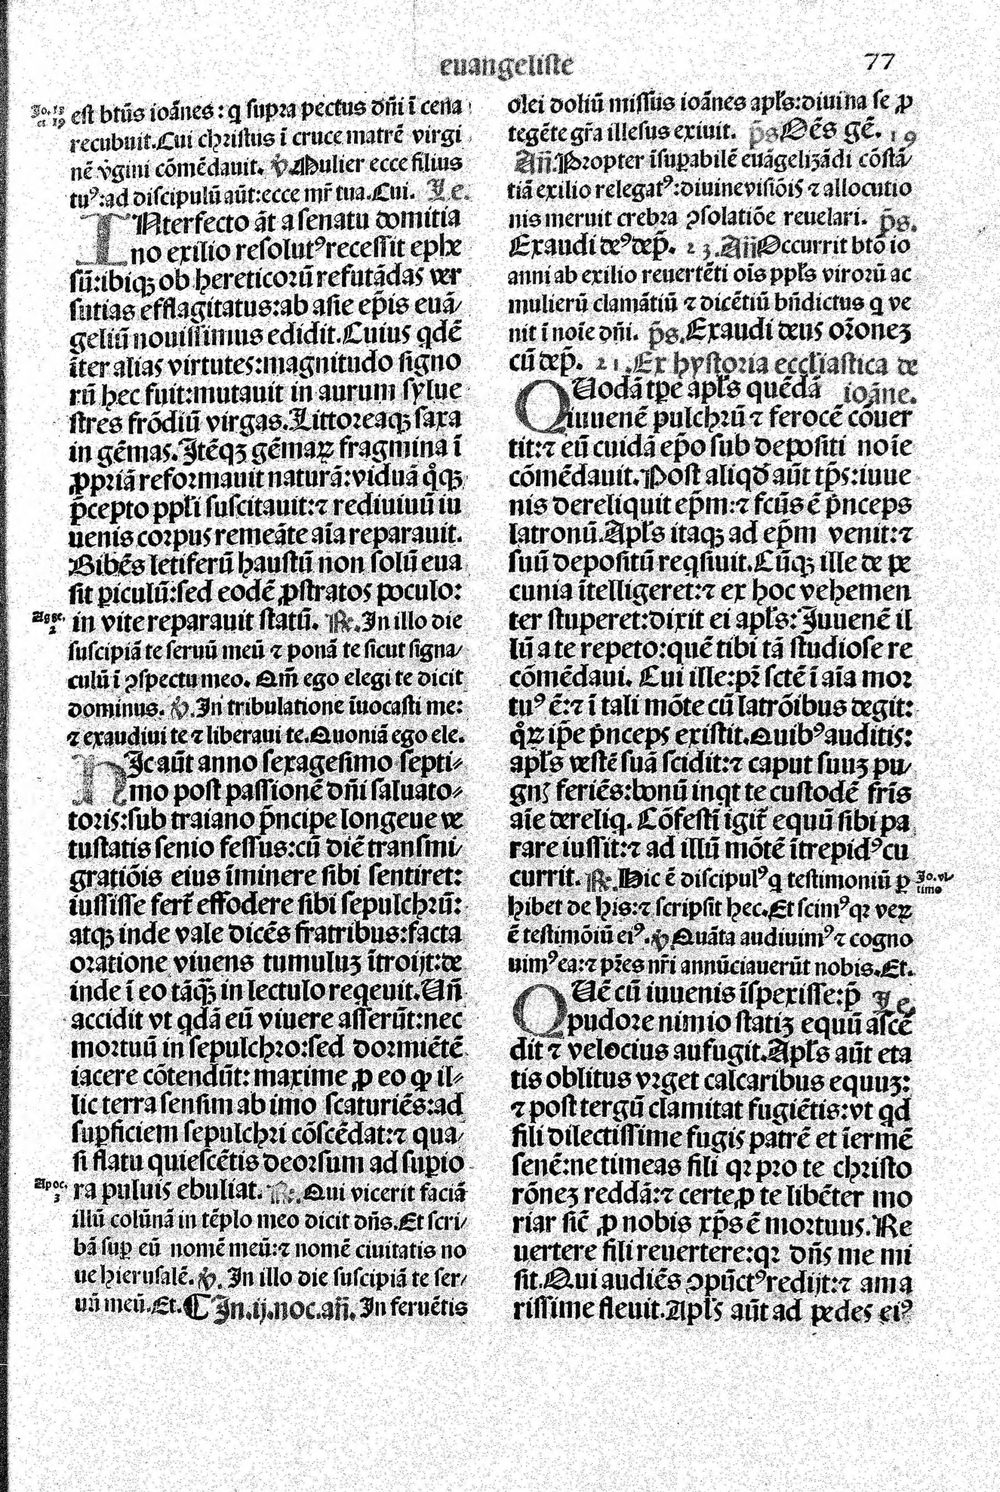 euangeliste
77
Jo. 13
et 19
est btũs ioãnes: q̃ supra pectus dñi ĩ cena
recubuit. Cui christus ĩ cruce matrẽ virgi
nẽ v̓gini cõmẽdauit. ℣ Mulier ecce filius
tuꝰ: ad discipulũ aũt: ecce mr̃ tua. Cui. Le.
INterfecto ãt a senatu domitia
no exilio resolutꝰ recessit ephe
sũ: ibiqꝫ ob hereticorũ refutãdas ver
sutias efflagitatus: ab asie ep̃is euã/
geliũ nouissimus edidit. Cuius qdẽ
ĩter alias virtutes: magnitudo signo
rũ hec fuit: mutauit in aurum sylue
stres frõdiũ virgas. Littoreaqꝫ saxa
in gẽmas. Jtẽqꝫ gẽmaꝝ fragmina ĩ
ꝓpriã reformauit naturã: viduã q̊qꝫ
p̃cepto ppl̃i suscitauit: ⁊ rediuiuũ iu
uenis corpus remeãte aĩa reparauit.
Bibẽs letiferũ haustũ non solũ eua
sit ꝑiculũ: sed eodẽ ꝓstratos poculo:
Agge.
2
in vite reparauit statũ. ℟. In illo die
suscipiã te seruũ meũ ⁊ ponã te sicut signa/
culũ ĩ ꝯspectu meo. Qm̃ ego elegi te dicit
dominus. ℣. In tribulatione ĩuocasti me:
⁊ exaudiui te ⁊ liberaui te. Quoniã ego ele.
HIc aũt anno sexagesimo septi-
mo post passionẽ dñi saluato-
toris: sub traiano p̃ncipe longeue ve
tustatis senio fessus: cũ diẽ transmi/
gratiõis eius ĩminere sibi sentiret:
iussisse fert̃ effodere sibi sepulchrũ:
atqꝫ inde vale dicẽs fratribus: facta
oratione viuens tumuluꝫ ĩtroijt: de
inde ĩ eo tãq̃ꝫ in lectulo reqeuit. Uñ
accidit vt qdã eũ viuere asserũt: nec
mortuũ in sepulchro: sed dormiẽtẽ
iacere cõtendũt: maxime ꝓ eo qꝙ il-
lic terra sensim ab imo scaturiẽs: ad
suꝑficiem sepulchri cõscẽdat: ⁊ qua/
si flatu quiescẽtis deorsum ad supio
Apoc.
3
ra puluis ebuliat. ℟. Qui vicerit faciã
illũ colũnã in tẽplo meo dicit dñs. Et scri/
bã suꝑ eũ nomẽ meũ: ⁊ nomẽ ciuitatis no
ue hierusalẽ. ℣. In illo die suscipiã te ser/
uũ meũ. Et. ¶ In. ij. noc. añ. In feruẽtis
olei doliũ missus ioãnes apl̃s: diuina se ꝓ
tegẽte gr̃a illesus exiuit. p̃s Oẽs gẽ. 19
Añ. Propter ĩsuꝑabilẽ euãgelizãdi cõstã/
tiã exilio relegatꝰ: diuine visiõis ⁊ allocutio
nis meruit crebra ꝯsolatiõe reuelari. p̃s.
Exaudi deꝰ dep̃. 23. Añ Occurrit btõ io
anni ab exilio reuertẽti oĩs ppl̃s virorũ ac
mulierũ clamãtiũ ⁊ dicẽtiũ bñdictus q ve
nit ĩ noĩe dñi. p̃s. Exaudi deus or̃oneꝫ
cũ dep̃. 21. Ex hystoria eccl̃iastica de
ioãne.
QUodã tꝑe apl̃s quẽdã
iuuenẽ pulchrũ ⁊ ferocẽ cõuer
tit: ⁊ eũ cuidã ep̃o sub depositi noĩe
cõmẽdauit. Post aliqd̃ aũt tp̃s: iuue
nis dereliquit ep̃m: ⁊ fcũs ẽ p̃nceps
latronũ. Apl̃s itaqꝫ ad ep̃m venit: ⁊
suũ depositũ reqsiuit. Cũqꝫ ille de pe
cunia ĩtelligeret: ⁊ ex hoc vehemen
ter stuperet: dixit ei apl̃s: Juuenẽ il
lũ a te repeto: quẽ tibi tã studiose re
cõmẽdaui. Cui ille: pr̃ sctẽ ĩ aĩa mor
tuꝰ ẽ: ⁊ ĩ tali mõte cũ latrõibus degit:
q̊ꝝ ip̃e p̃nceps existit. Quibꝰ auditis:
apl̃s vestẽ suã scidit: ⁊ caput suuꝫ pu/
gnis feriẽs: bonũ inqt te custodẽ fr̃is
aĩe dereliq. Cõfestĩ igit̃ equũ sibi pa
rare iussit: ⁊ ad illũ mõtẽ ĩtrepidꝰ cu
currit. ℟. Hic ẽ discipulꝰ q testimoniũ ꝑ
Jo. vl
timo
hibet de his: ⁊ scripsit hec. Et scimꝰ qꝛ veꝝ
ẽ testimõiũ eiꝰ. ℣ Quãta audiuimꝰ ⁊ cogno
uimꝰ ea: ⁊ pr̃es nr̃i annũciauerũt nobis. Et.
QUẽ cũ iuuenis ĩspexisse: p̃ Le
pudore nimio statiꝫ equũ ascẽ
dit ⁊ velocius aufugit. Apl̃s aũt eta
tis oblitus vrget calcaribus equuꝫ:
⁊ post tergũ clamitat fugiẽtis: vt qd
fili dilectissime fugis patrẽ et ĩermẽ
senẽ: ne timeas fili qꝛ pro te christo
rõneꝫ reddã: ⁊ certe ꝓ te libẽter mo
riar sic̃ ꝓ nobis xp̃s ẽ mortuus. Re
uertere fili reuertere: qꝛ dñs me mi
sit. Qui audiẽs ꝯpũctꝰ redijt: ⁊ ama
rissime fleuit. Apl̃s aũt ad pedes eiꝰ